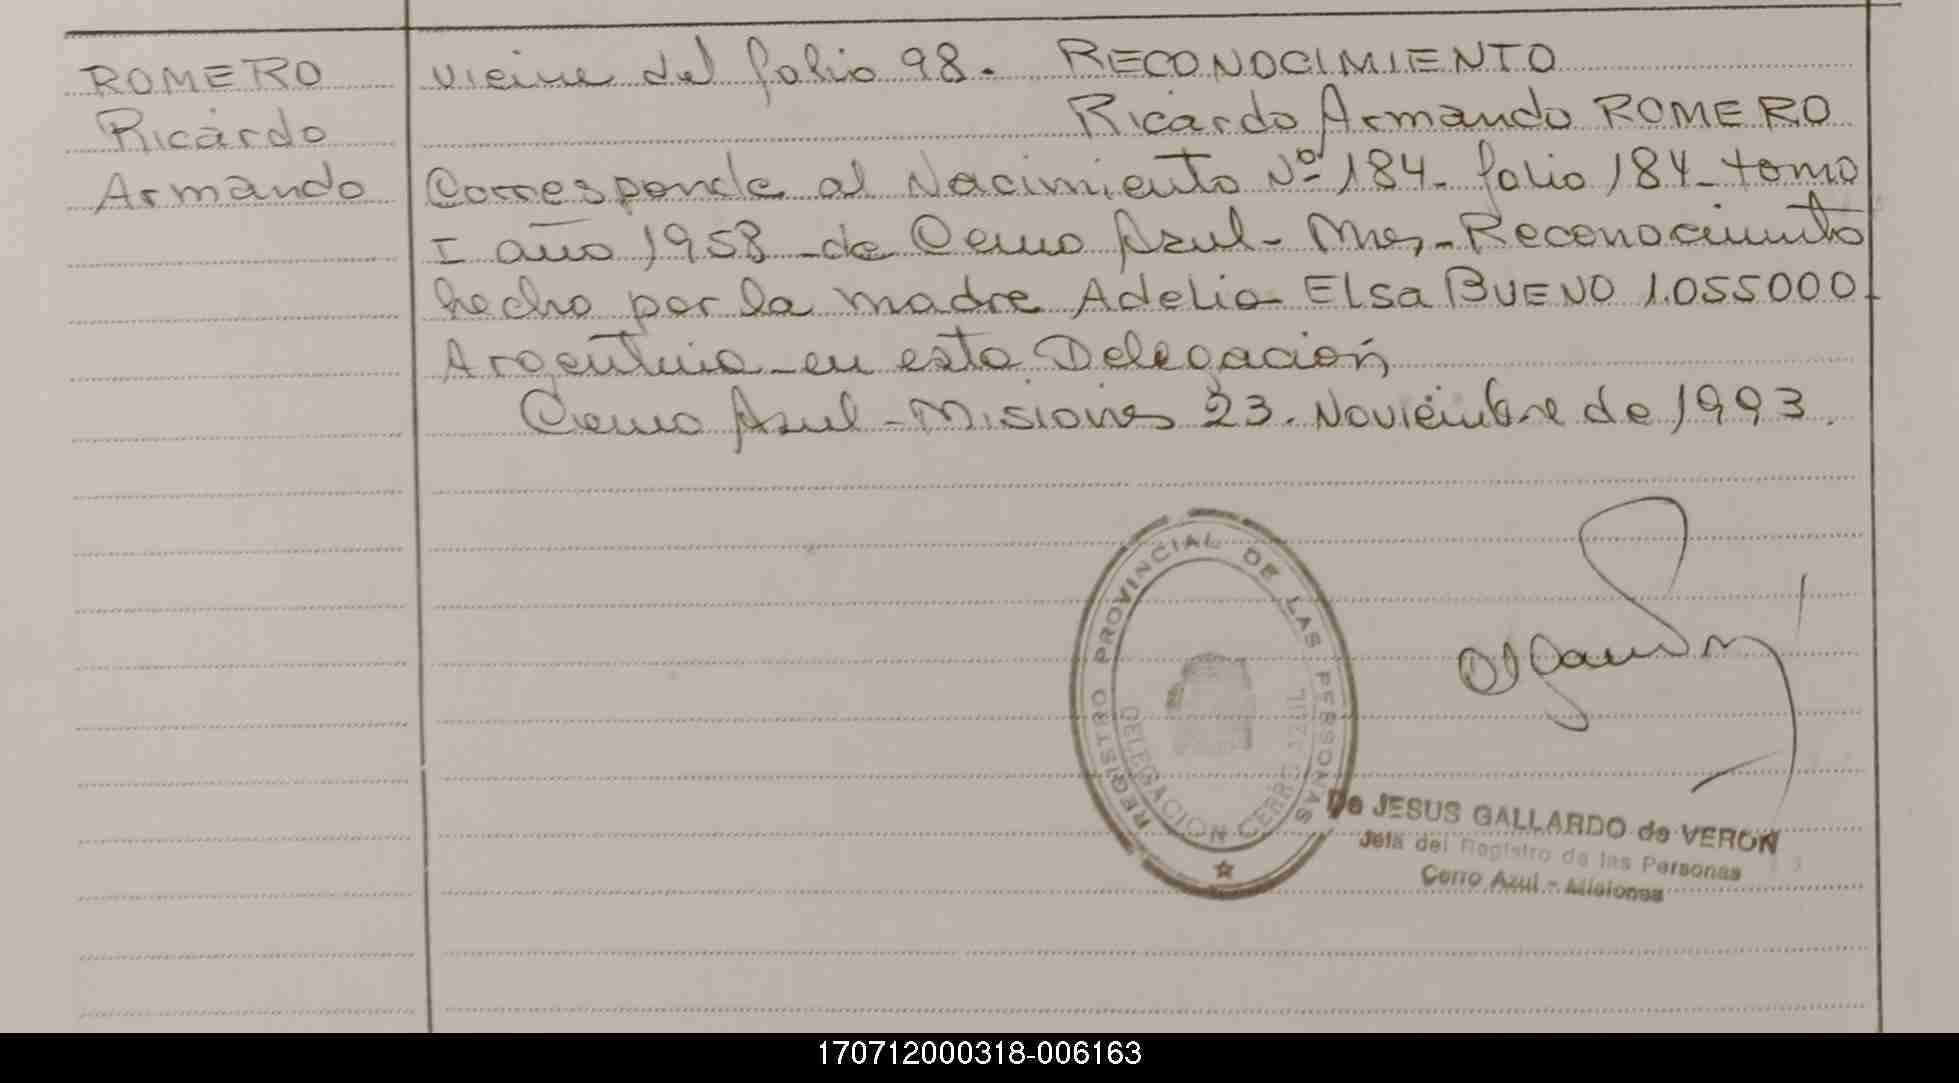 ROMERO
Ricardo
Armando
viene del folio 98. RECONOCIMIENTO
Ricardo Armando ROMERO
Corresponde al Nacimiento Nº 184. folio 184 - tomo
I año 1958 - de Cerro Azul - Mnes - Reconocimiento
hecho por la madre Adelia Elsa BUENO 1.055000
Argentina - en esta Delegación
Cerro Azul - Misiones 23. Noviembre de 1993.
REGISTRO PROVINCIAL DE LAS PERSONAS
DELEGACION CERRO AZUL
De JESUS GALLARDO de VERON
Jefa del Registro de las Personas
Cerro Azul - Misiones
170712000318-006163